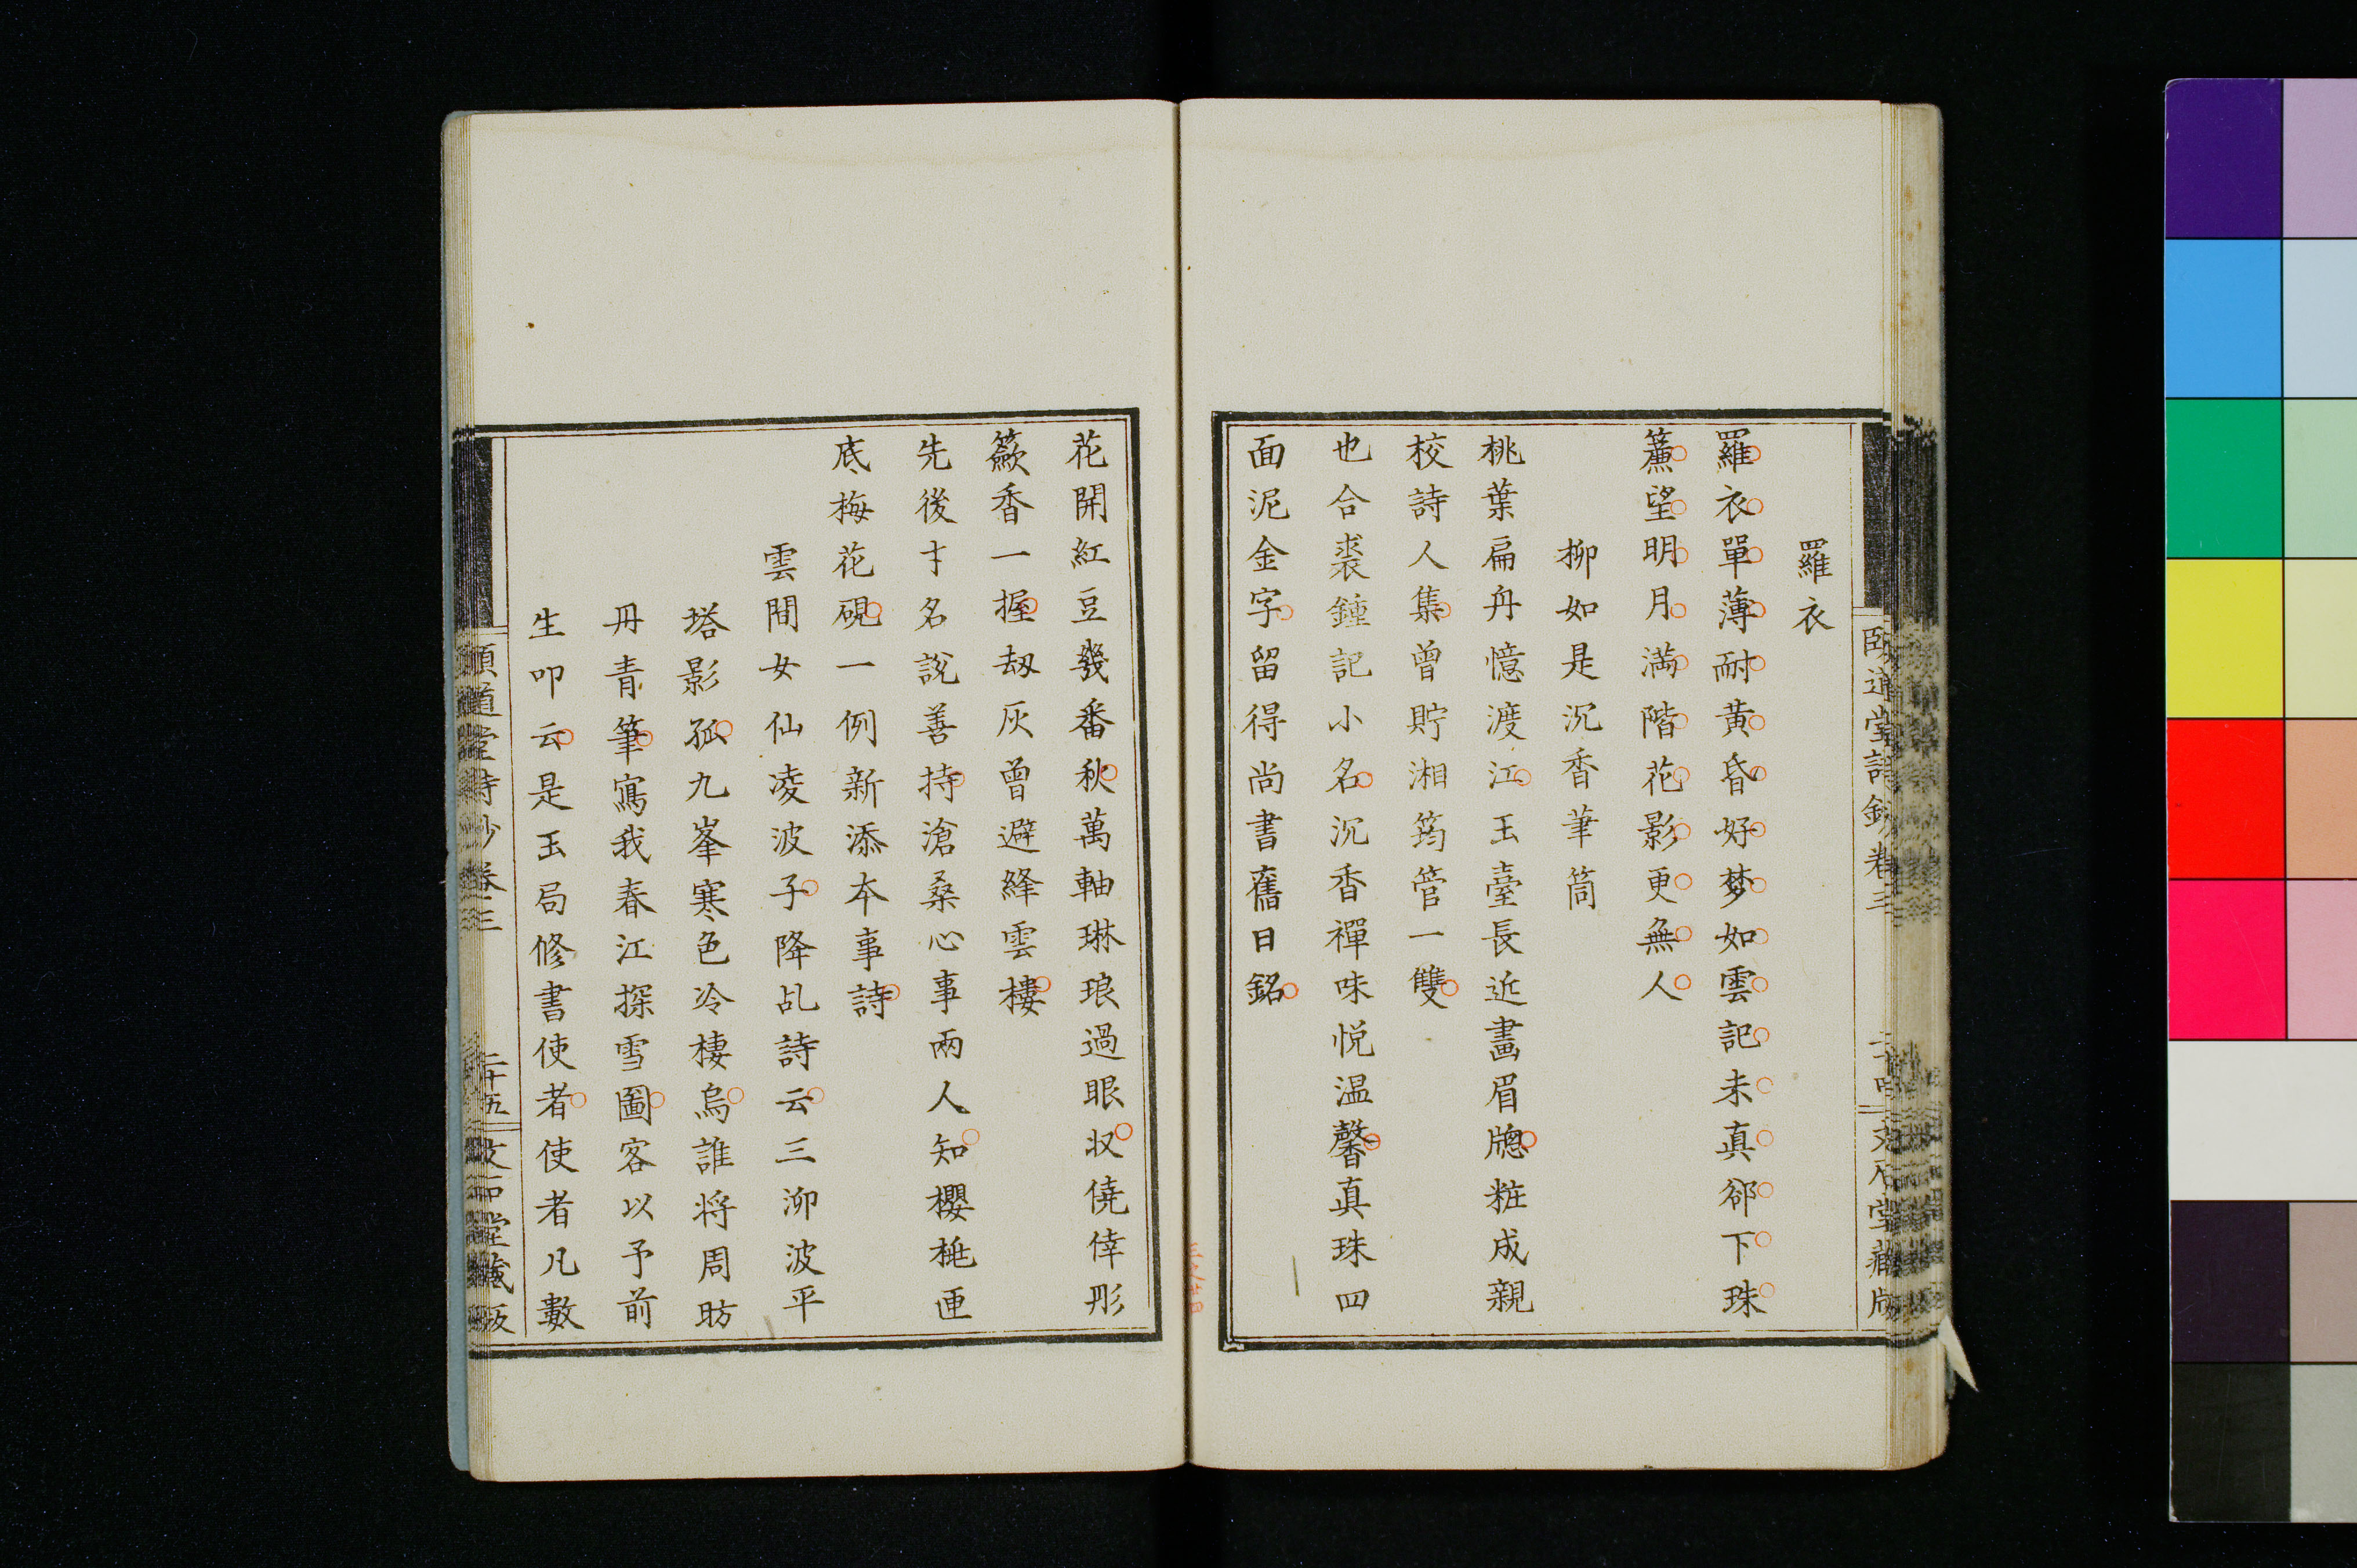 羅衣
羅衣單薄耐黃昏好梦如雲記未真郤下珠
簾望明月滿階花影更無人
柳如是沉香筆筒
桃葉扁舟憶渡江玉臺長近畫眉牕粧成親
校詩人集曾貯湘筠管一雙
也合裘鍾記小名沉香禪味悦温馨真珠四
面泥金字留得尚書舊日銘
花開紅豆幾番秋萬軸琳琅過眼収僥倖彤
籨香一握刼灰曾避絳雲樓
先後才名說善持滄桑心事兩人知櫻桃匣
底梅花硯一例新添本事詩
雲間女仙凌波子降乩詩云三泖波平
塔影孤九峯寒色冷棲烏誰将周昉
丹青筆寫我春江探雪圖客以予前
生叩云是玉局修書使者使者凡數
頤道堂詩鈔卷三
二十五
文石堂藏版